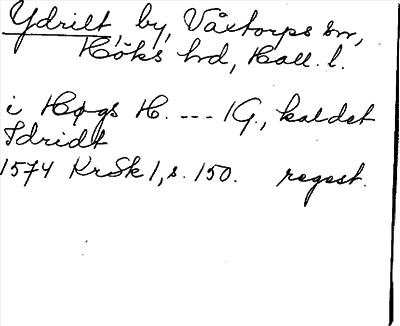 Ydrilt, by, Våxtorps sn,
Höks hd, Hall. l.
i Høgs H. --- 1 G., kaldet
Idridt
1574 KrSk 1, s. 150. regest.